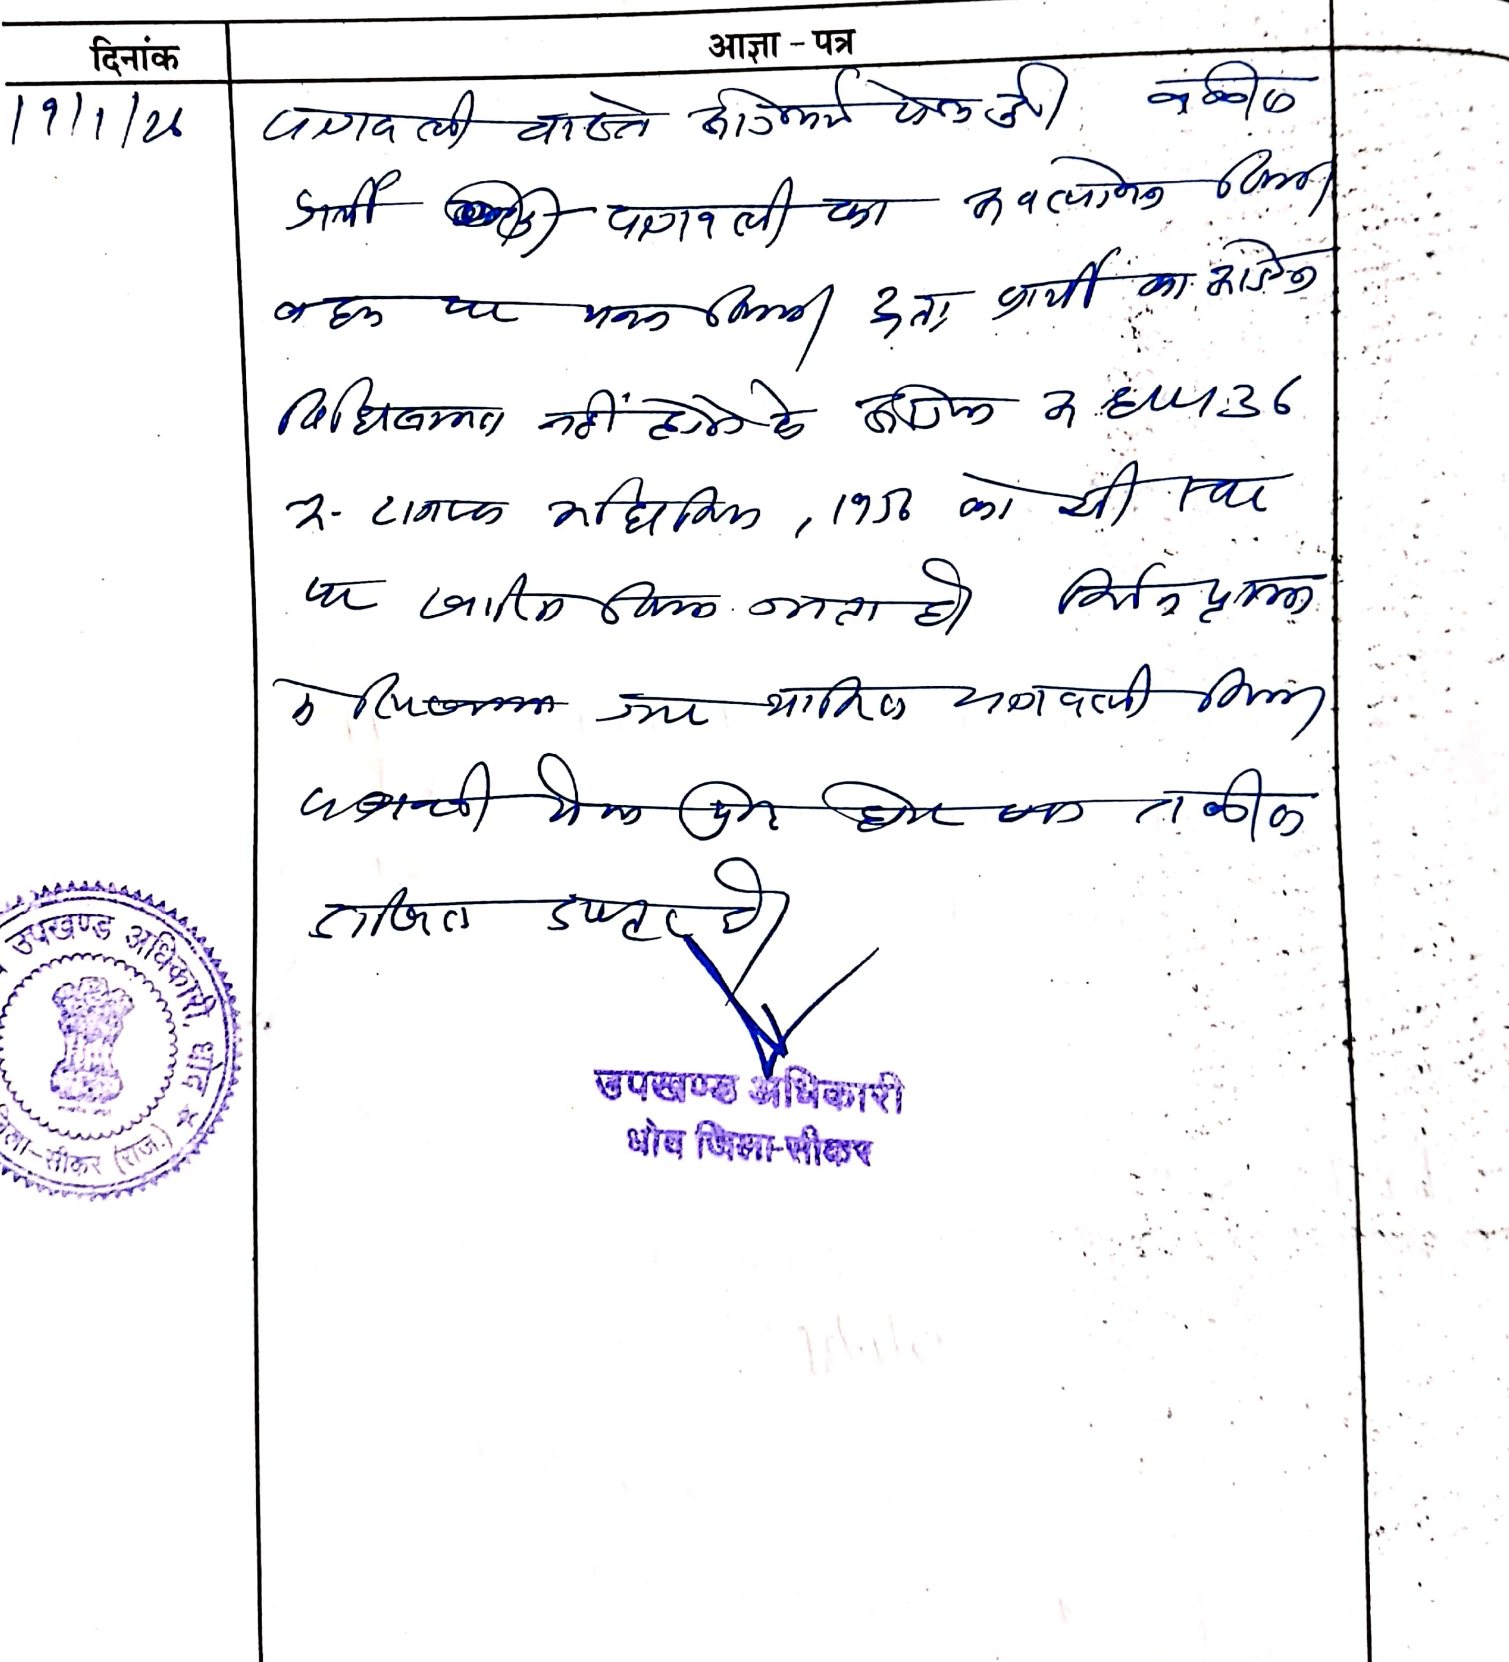 दिनांक
आज्ञा - पत्र
19/1/26 पत्रावली वास्ते निर्णय पेश हुई। वकील
प्रार्थी पत्रावली का अवलोकन किया।
बहस पर मनन किया। अतः प्रार्थी का
विधिसम्मत नहीं होने के धारा 136
अधिनियम, 1956 को इसी स्तर
पर खारिज किया जाता है। निर्णय पृथक
से लिखाया जाकर शामिल पत्रावली किया।
पत्रावली फैसल शुमार होकर बाद तकमील
दाखिल दफ्तर हो।
उपखण्ड अधिकारी
धोद जिला-सीकर
उपखण्ड अधिकारी, धोद
जिला-सीकर (राज.)